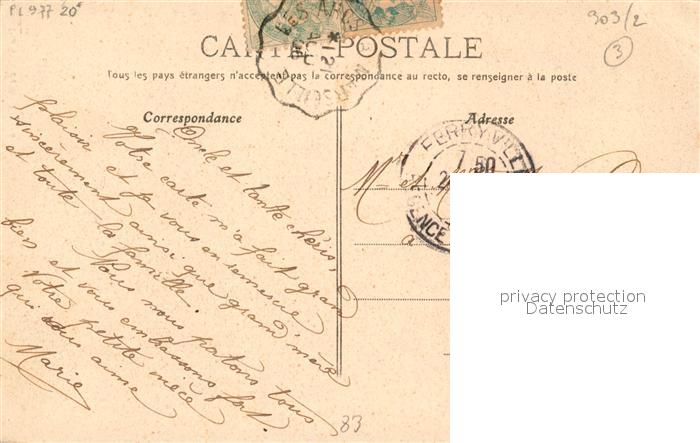 PL 977 20ᶠ
903/2
3
CARTE POSTALE
Tous les pays étrangers n'acceptent pas la correspondance au recto, se renseigner à la poste
Correspondance
Adresse
LES ARCS
MARSEILLE
FERRYVILLE
7 50
Oncle et tante chéris,
Votre carte m'a fait grand
plaisir et je vous en remercie
sincèrement ainsi que grand'mère
et toute la famille.
Nous nous portons tous
bien et vous embrassons fort.
Votre petite nièce
qui vous aime
Marie
Mr et
à
83
privacy protection
Datenschutz